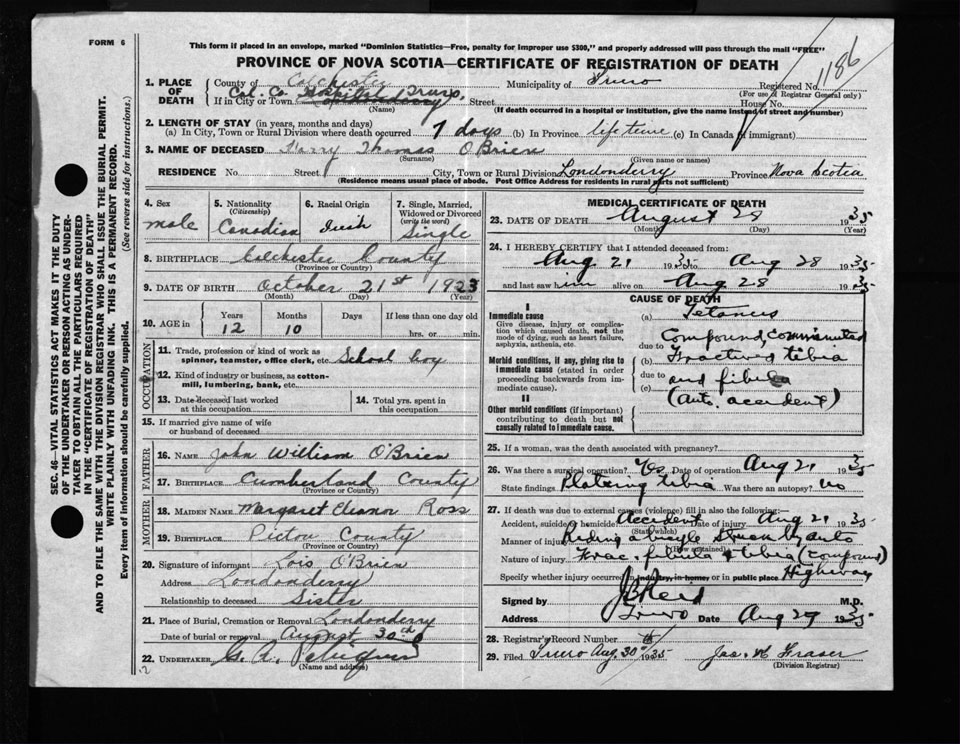 FORM 6
This form if placed in an envelope, marked "Dominion Statistics—Free, penalty for improper use $300," and properly addressed will pass through the mail "FREE"
PROVINCE OF NOVA SCOTIA—CERTIFICATE OF REGISTRATION OF DEATH
1. PLACE OF DEATH County of Colchester Municipality of Truro Registered No. 1186
(For use of Registrar General only)
If in City or Town Col. Co. Hospital Truro, Londonderry Street House No.
(Name) (If death occurred in a hospital or institution, give the name instead of street and number)
2. LENGTH OF STAY (in years, months and days)
(a) In City, Town or Rural Division where death occurred 7 days (b) In Province life time (c) In Canada (if immigrant)
3. NAME OF DECEASED Harry Thomas O'Brien
(Surname) (Given name or names)
RESIDENCE No. Street City, Town or Rural Division Londonderry Province Nova Scotia
(Residence means usual place of abode. Post Office Address for residents in rural parts not sufficient)
4. Sex male
5. Nationality (Citizenship) Canadian
6. Racial Origin Irish
7. Single, Married, Widowed or Divorced (write the word) Single
8. BIRTHPLACE Colchester County
(Province or Country)
9. DATE OF BIRTH October 21st 1923
(Month) (Day) (Year)
10. AGE in Years 12 Months 10 Days If less than one day old hrs. or min.
OCCUPATION
11. Trade, profession or kind of work as spinner, teamster, office clerk, etc. School boy
12. Kind of industry or business, as cotton-mill, lumbering, bank, etc.
13. Date deceased last worked at this occupation
14. Total yrs. spent in this occupation
15. If married give name of wife or husband of deceased
FATHER
16. NAME John William O'Brien
17. BIRTHPLACE Cumberland County
(Province or Country)
MOTHER
18. MAIDEN NAME Margaret Eleanor Ross
19. BIRTHPLACE Pictou County
(Province or Country)
20. Signature of informant Lois O'Brien
Address Londonderry
Relationship to deceased Sister
21. Place of Burial, Cremation or Removal Londonderry
Date of burial or removal August 30th
22. UNDERTAKER G. A.
(Name and address)
MEDICAL CERTIFICATE OF DEATH
23. DATE OF DEATH August 28 1935
(Month) (Day) (Year)
24. I HEREBY CERTIFY that I attended deceased from:
Aug 21 1935 to Aug 28 1935
and last saw him alive on Aug 28 1935
CAUSE OF DEATH
I
Immediate cause
Give disease, injury or complication which caused death, not the mode of dying, such as heart failure, asphyxia, asthenia, etc.
(a) Tetanus
due to Compound, comminuted
Morbid conditions, if any, giving rise to immediate cause (stated in order proceeding backwards from immediate cause).
(b) Fractured tibia
due to and fibula
(c) (auto. accident)
II
Other morbid conditions (if important) contributing to death but not causally related to immediate cause.
25. If a woman, was the death associated with pregnancy?
26. Was there a surgical operation? Yes Date of operation Aug 21 1935
State findings Plating tibia Was there an autopsy? no
27. If death was due to external causes (violence) fill in also the following:—
Accident, suicide or homicide Accident Date of injury Aug 21 1935
(State which)
Manner of injury Riding a bicycle struck by auto
(How sustained)
Nature of injury Frac. fibula & tibia (compound)
Specify whether injury occurred in industry, in home, or in public place Highway
Signed by J B Reid M.D.
Address Truro Date Aug 29 1935
28. Registrar's Record Number
29. Filed Truro Aug. 30th 1935 Jas. W Fraser
(Division Registrar)
SEC. 46—VITAL STATISTICS ACT MAKES IT THE DUTY
OF THE UNDERTAKER OR PERSON ACTING AS UNDERTAKER TO OBTAIN ALL THE PARTICULARS REQUIRED
IN THE "CERTIFICATE OF REGISTRATION OF DEATH"
AND TO FILE THE SAME WITH THE DIVISION REGISTRAR WHO SHALL ISSUE THE BURIAL PERMIT.
WRITE PLAINLY WITH UNFADING INK. THIS IS A PERMANENT RECORD.
Every item of information should be carefully supplied. (See reverse side for instructions.)